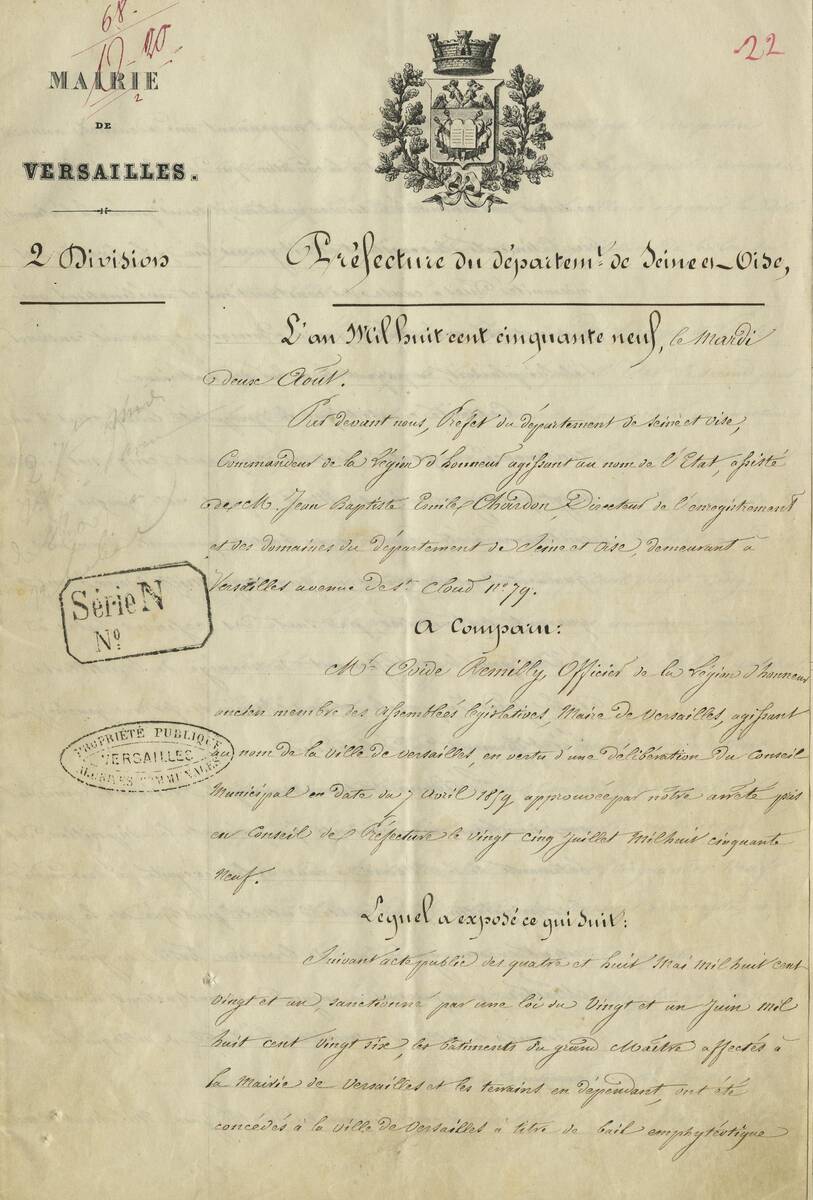 68
22
MAIRIE
DE
VERSAILLES.
2 Division
Préfecture du départemt. de Seine et-Oise,
L'an Mil huit cent cinquante neuf, le Mardi
deux Août.
Par devant nous, Préfet du département de Seine et Oise,
Commandeur de la Légion d'honneur agissant au nom de l'Etat, assisté
de M. Jean Baptiste Emile Chardon, Directeur de l'enregistrement
et des domaines du département de Seine et Oise, demeurant à
Versailles avenue de St. Cloud No. 79.
A Comparu:
Mr. Ovide Remilly, Officier de la Légion d'honneur
ancien membre des assemblées législatives, Maire de Versailles, agissant
au nom de la ville de Versailles, en vertu d'une délibération du Conseil
Municipal en date du 7 Avril 1859 approuvée par notre arrêté pris
en Conseil de Préfecture le vingt cinq Juillet Mil huit cinquante
Neuf.
Lequel a exposé ce qui suit:
Suivant acte public des quatre et huit Mai Mil huit cent
vingt et un, sanctionné par une loi du Vingt et un Juin Mil
huit cent vingt six, les bâtiments du grand Maître affectés à
la Mairie de Versailles et les terrains en dépendant, ont été
concédés à la ville de Versailles à titre de bail emphytéotique
Série N
No
PROPRIÉTÉ PUBLIQUE
VERSAILLES
ARCHIVES COMMUNALES